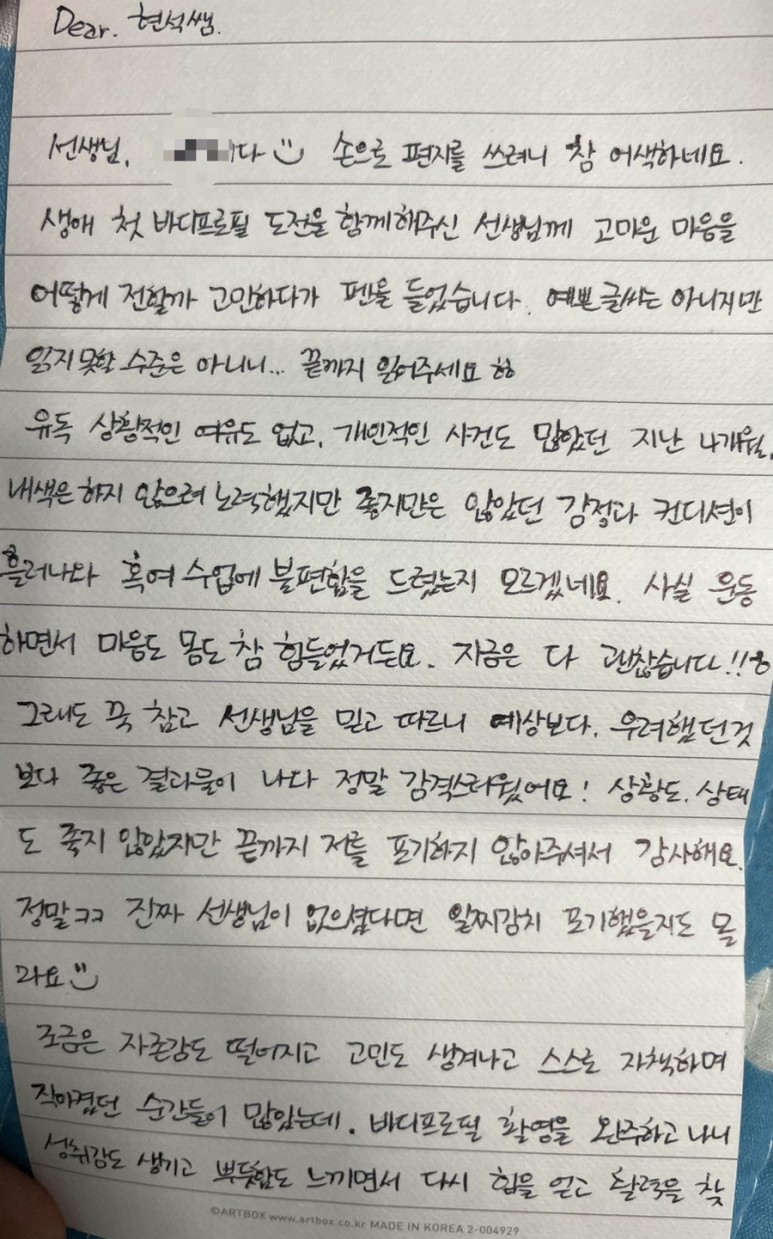 Dear. 현석쌤.
선생님, 다 손으로 편지를 쓰려니 참 어색하네요.
생애 첫 바디프로필 도전을 함께해주신 선생님께 고마운 마음을
어떻게 전할까 고민하다가 펜을 들었습니다. 예쁜글씨는 아니지만
읽지못할 수준은 아니니... 끝까지 읽어주세요 ㅎㅎ
유독 상황적인 여유도 없고, 개인적인 사건도 많았던 지난 4개월,
내색은 하지 않으려 노력했지만 좋지만은 않았던 감정과 컨디션이
흘러나와 혹여 수업에 불편함을 드렸는지 모르겠네요. 사실 운동
하면서 마음도 몸도 참 힘들었거든요. 지금은 다 괜찮습니다!!
그래도 꾹 참고 선생님을 믿고 따르니 예상보다, 우려했던것
보다 좋은 결과물이 나와 정말 감격스러웠어요! 상황도, 상태
도 좋지 않았지만 끝까지 저를 포기하지 않아주셔서 감사해요.
정말ㅋㅋ 진짜 선생님이 없으셨다면 일찌감치 포기했을지도 몰
라요
조금은 자존감도 떨어지고 고민도 생겨나고 스스로 자책하며
작아졌던 순간들이 많았는데. 바디프로필 촬영을 완주하고 나니
성취감도 생기고 뿌듯함도 느끼면서 다시 힘을 얻고 활력을 찾
©ARTBOX www.artbox.co.kr MADE IN KOREA 2-004929